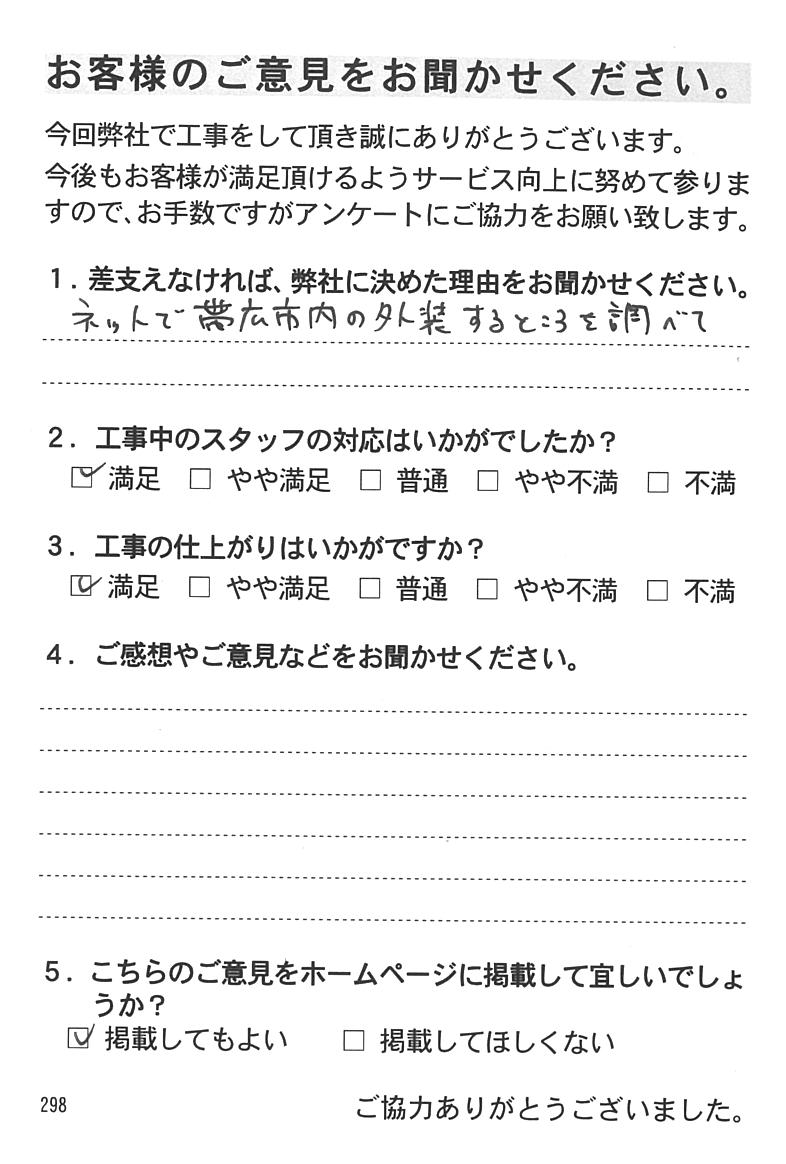 お客様のご意見をお聞かせください。
今回弊社で工事をして頂き誠にありがとうございます。
今後もお客様が満足頂けるようサービス向上に努めて参りま
すので、お手数ですがアンケートにご協力をお願い致します。
1．差支えなければ、弊社に決めた理由をお聞かせください。
ネットで帯広市内の外装するところを調べて
2．工事中のスタッフの対応はいかがでしたか？
☑ 満足 □ やや満足 □ 普通 □ やや不満 □ 不満
3．工事の仕上がりはいかがですか？
☑ 満足 □ やや満足 □ 普通 □ やや不満 □ 不満
4．ご感想やご意見などをお聞かせください。
5．こちらのご意見をホームページに掲載して宜しいでしょ
うか？
☑ 掲載してもよい □ 掲載してほしくない
298 ご協力ありがとうございました。